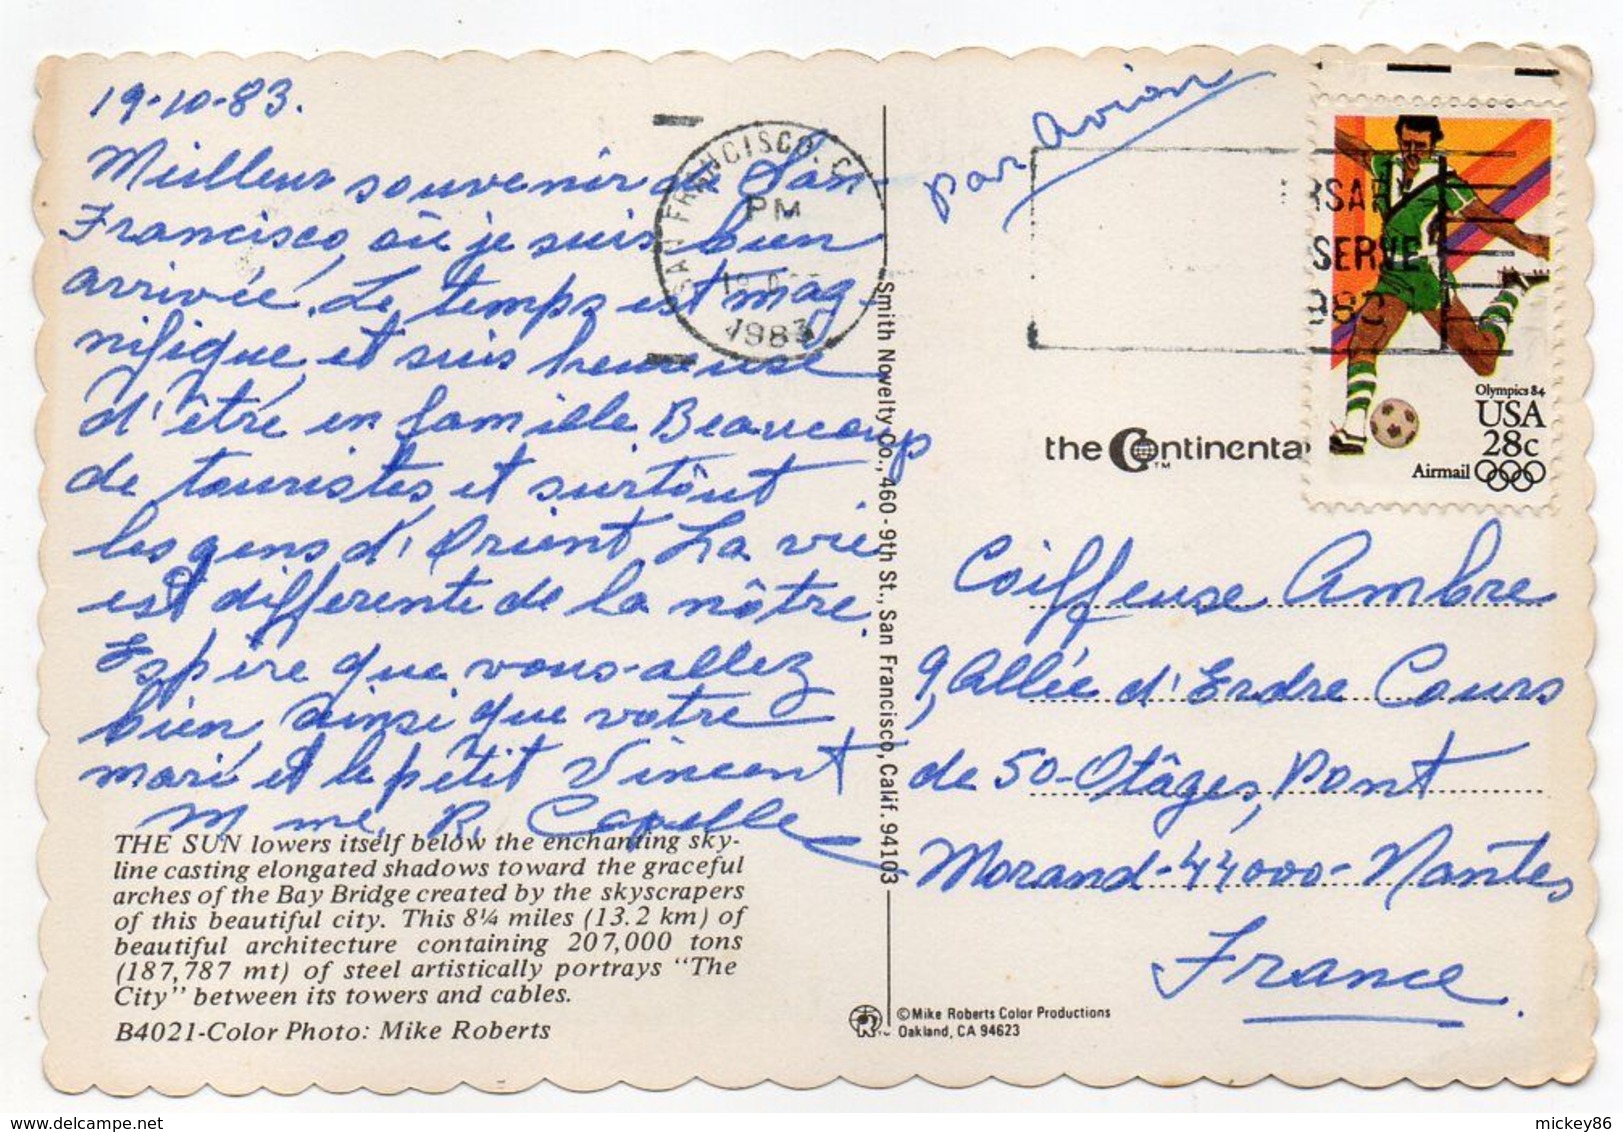 19-10-83.
Meilleur souvenir de San-
Francisco, où je suis bien
arrivée. Le temps est mag-
nifique, et suis heureuse
d'être en famille. Beaucoup
de touristes et surtôut
les gens d'Orient. La vie
est differente de la nôtre.
Espère que vous-allez
bien ainsi que votre
mari et le petit Vincent
Mme R. Capelle
THE SUN lowers itself below the enchanting sky-
line casting elongated shadows toward the graceful
arches of the Bay Bridge created by the skyscrapers
of this beautiful city. This 8¼ miles (13.2 km) of
beautiful architecture containing 207,000 tons
(187,787 mt) of steel artistically portrays "The
City" between its towers and cables.
B4021-Color Photo: Mike Roberts
SAN FRANCISCO, CA
PM
19
1983
Smith Novelty Co., 460-9th St., San Francisco, Calif. 94103
par avion
RSARY
SERVE
983
Olympics 84
USA
28c
Airmail
the Continental
TM
Coiffeuse Ambre
9, Allée d'Erdre Cours
de 50-Otâges, Pont
Morand-44000-Nantes
France.
©Mike Roberts Color Productions
Oakland, CA 94623
mickey86